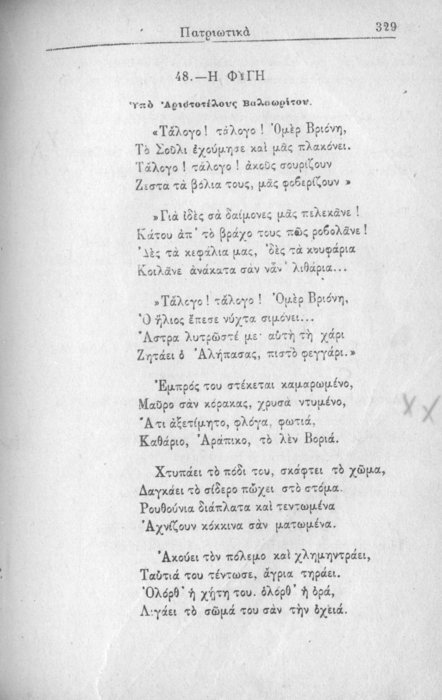 Πατριωτικὰ 329
48.—Η ΦΥΓΗ
Ὑπὸ Ἀριστοτέλους Βαλαωρίτου.
«Τἄλογο! τἄλογο! Ὀμὲρ Βριόνη,
Τὸ Σοῦλι ἐχούμησε καὶ μᾶς πλακόνει.
Τἄλογο! τἄλογο! ἀκοῦς σουρίζουν
Ζεστὰ τὰ βόλια τους, μᾶς φοβερίζουν »
»Γιὰ ἰδὲς σὰ δαίμονες μᾶς πελεκᾶνε!
Κάτου ἀπ' τὸ βράχο τους πῶς ροβολᾶνε!
Δὲς τὰ κεφάλια μας, δὲς τὰ κουφάρια
Κοιλᾶνε ἀνάκατα σὰν νἆν' λιθάρια...
»Τἄλογο! τἄλογο! Ὀμὲρ Βριόνη,
Ὁ ἥλιος ἔπεσε νύχτα σιμόνει...
Ἄστρα λυτρῶστέ με· αὐτὴ τὴ χάρι
Ζητάει ὁ Ἀλήπασας, πιστὸ φεγγάρι.»
Ἐμπρός του στέκεται καμαρωμένο,
Μαῦρο σὰν κόρακας, χρυσὰ ντυμένο,
Ἄτι ἀξετίμητο, φλόγα, φωτιά,
Καθάριο, Ἀράπικο, τὸ λὲν Βοριά.
Χτυπάει τὸ πόδι του, σκάφτει τὸ χῶμα,
Δαγκάει τὸ σίδερο πὤχει στὸ στόμα.
Ρουθούνια διάπλατα καὶ τεντωμένα
Ἀχνίζουν κόκκινα σὰν ματωμένα.
Ἀκούει τὸν πόλεμο καὶ χλημηντράει,
Ταὐτιά του τέντωσε, ἄγρια τηράει.
Ὁλόρθ' ἡ χήτη του. ὁλόρθ' ἡ ὀρά,
Λιγάει τὸ σῶμά του σὰν τὴν ὀχειά.